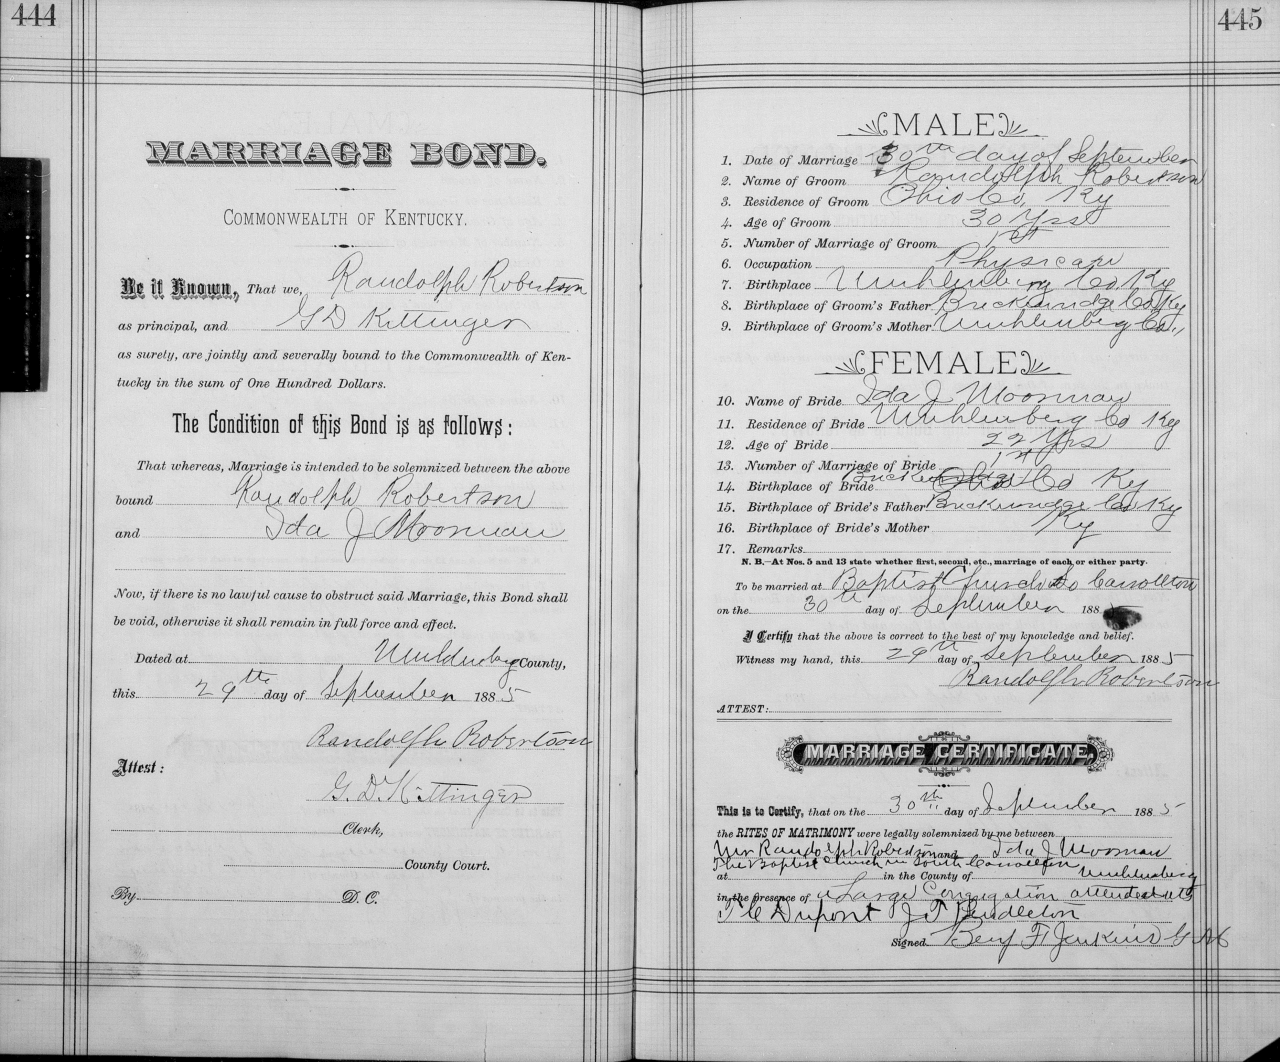 444
MARRIAGE BOND.
COMMONWEALTH OF KENTUCKY.
Be it Known, That we, Randolph Robertson
as principal, and G D Kittinger
as surety, are jointly and severally bound to the Commonwealth of Ken-
tucky in the sum of One Hundred Dollars.
The Condition of this Bond is as follows:
That whereas, Marriage is intended to be solemnized between the above
bound Randolph Robertson
and Ida J Moorman
Now, if there is no lawful cause to obstruct said Marriage, this Bond shall
be void, otherwise it shall remain in full force and effect.
Dated at Muhlenberg County,
this 29th day of September 1885
Randolph Robertson
Attest:
G. D. Kittinger
Clerk,
County Court.
By D. C.
445
MALE
1. Date of Marriage 30th day of September
2. Name of Groom Randolph Robertson
3. Residence of Groom Ohio Co, Ky
4. Age of Groom 30 Yrs
5. Number of Marriage of Groom 1st
6. Occupation Physician
7. Birthplace Muhlenberg Co Ky
8. Birthplace of Groom's Father Breckinridge Co Ky
9. Birthplace of Groom's Mother Muhlenberg Co.,
FEMALE
10. Name of Bride Ida J Moorman
11. Residence of Bride Muhlenberg Co Ky
12. Age of Bride 22 Yrs
13. Number of Marriage of Bride 1st
14. Birthplace of Bride Ohio Co Ky
15. Birthplace of Bride's Father Breckinridge Co Ky
16. Birthplace of Bride's Mother Ky
17. Remarks
N. B.—At Nos. 5 and 13 state whether first, second, etc., marriage of each or either party.
To be married at Baptist Church So Carrollton
on the 30th day of September 188
I Certify that the above is correct to the best of my knowledge and belief.
Witness my hand, this 29th day of September 1885
Randolph Robertson
ATTEST:
MARRIAGE CERTIFICATE.
This is to Certify, that on the 30th day of September 1885
the RITES OF MATRIMONY were legally solemnized by me between
Mr Randolph Robertson and Ida J Moorman
The Baptist Church in South Carrollton
at in the County of Muhlenberg
in the presence of a Large Congregation
T C Dupont J T Pendleton
Signed Benj F Jenkins